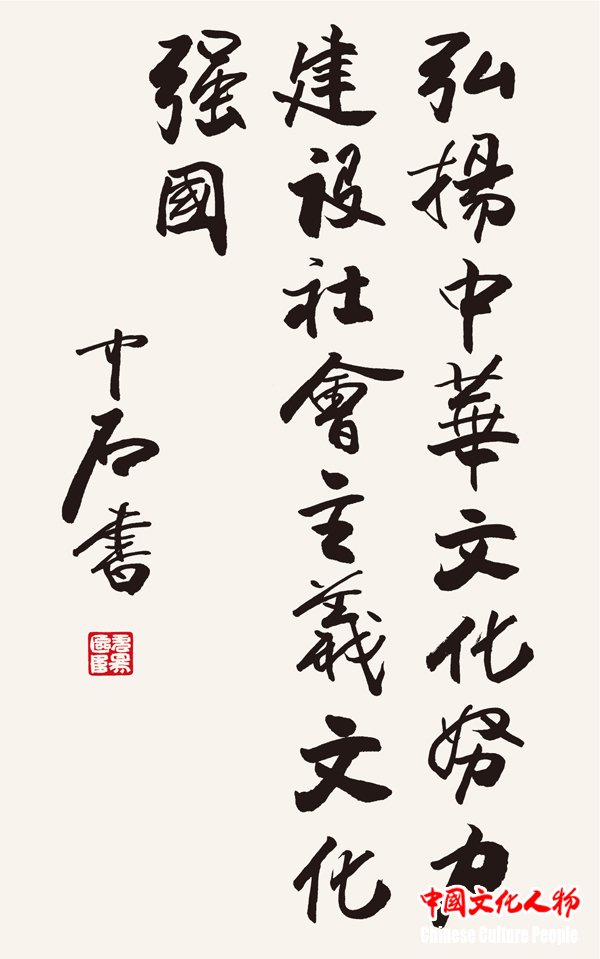 弘揚中華文化努力
建設社會主義文化
强國
中石書
中國文化人物
Chinese Culture People